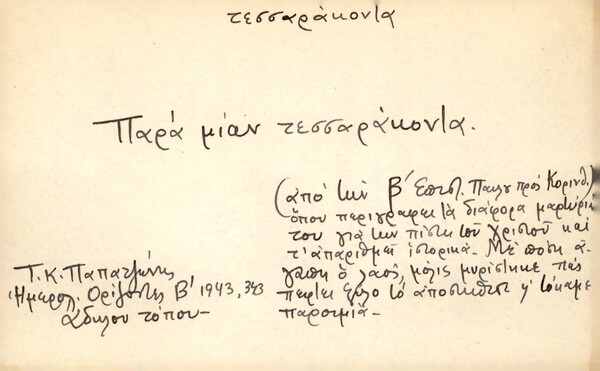 τεσσαράκοντα
Παρά μίαν τεσσαράκοντα.
(ἀπό τήν Β΄ Ἐπιστ. Παύλου πρός Κορινθ.
ὅπου περιγράφει τά διάφορα μαρτύριά
του γιά τήν πίστη τοῦ Χριστοῦ καί
τ' ἀπαριθμεῖ ἱστορικά. Μέ πόση ἀ-
γάπη ὁ λαός, μόλις μυρίστηκε πώς
πέφτει ξύλο τό ἀποστήθισε γ' τό καμε
παροιμία.-
Τ. Κ. Παπατζώνης
Ἡμερολ. Ὁρίζοντες Β΄ 1943, 343
ἀδήλου τόπου-